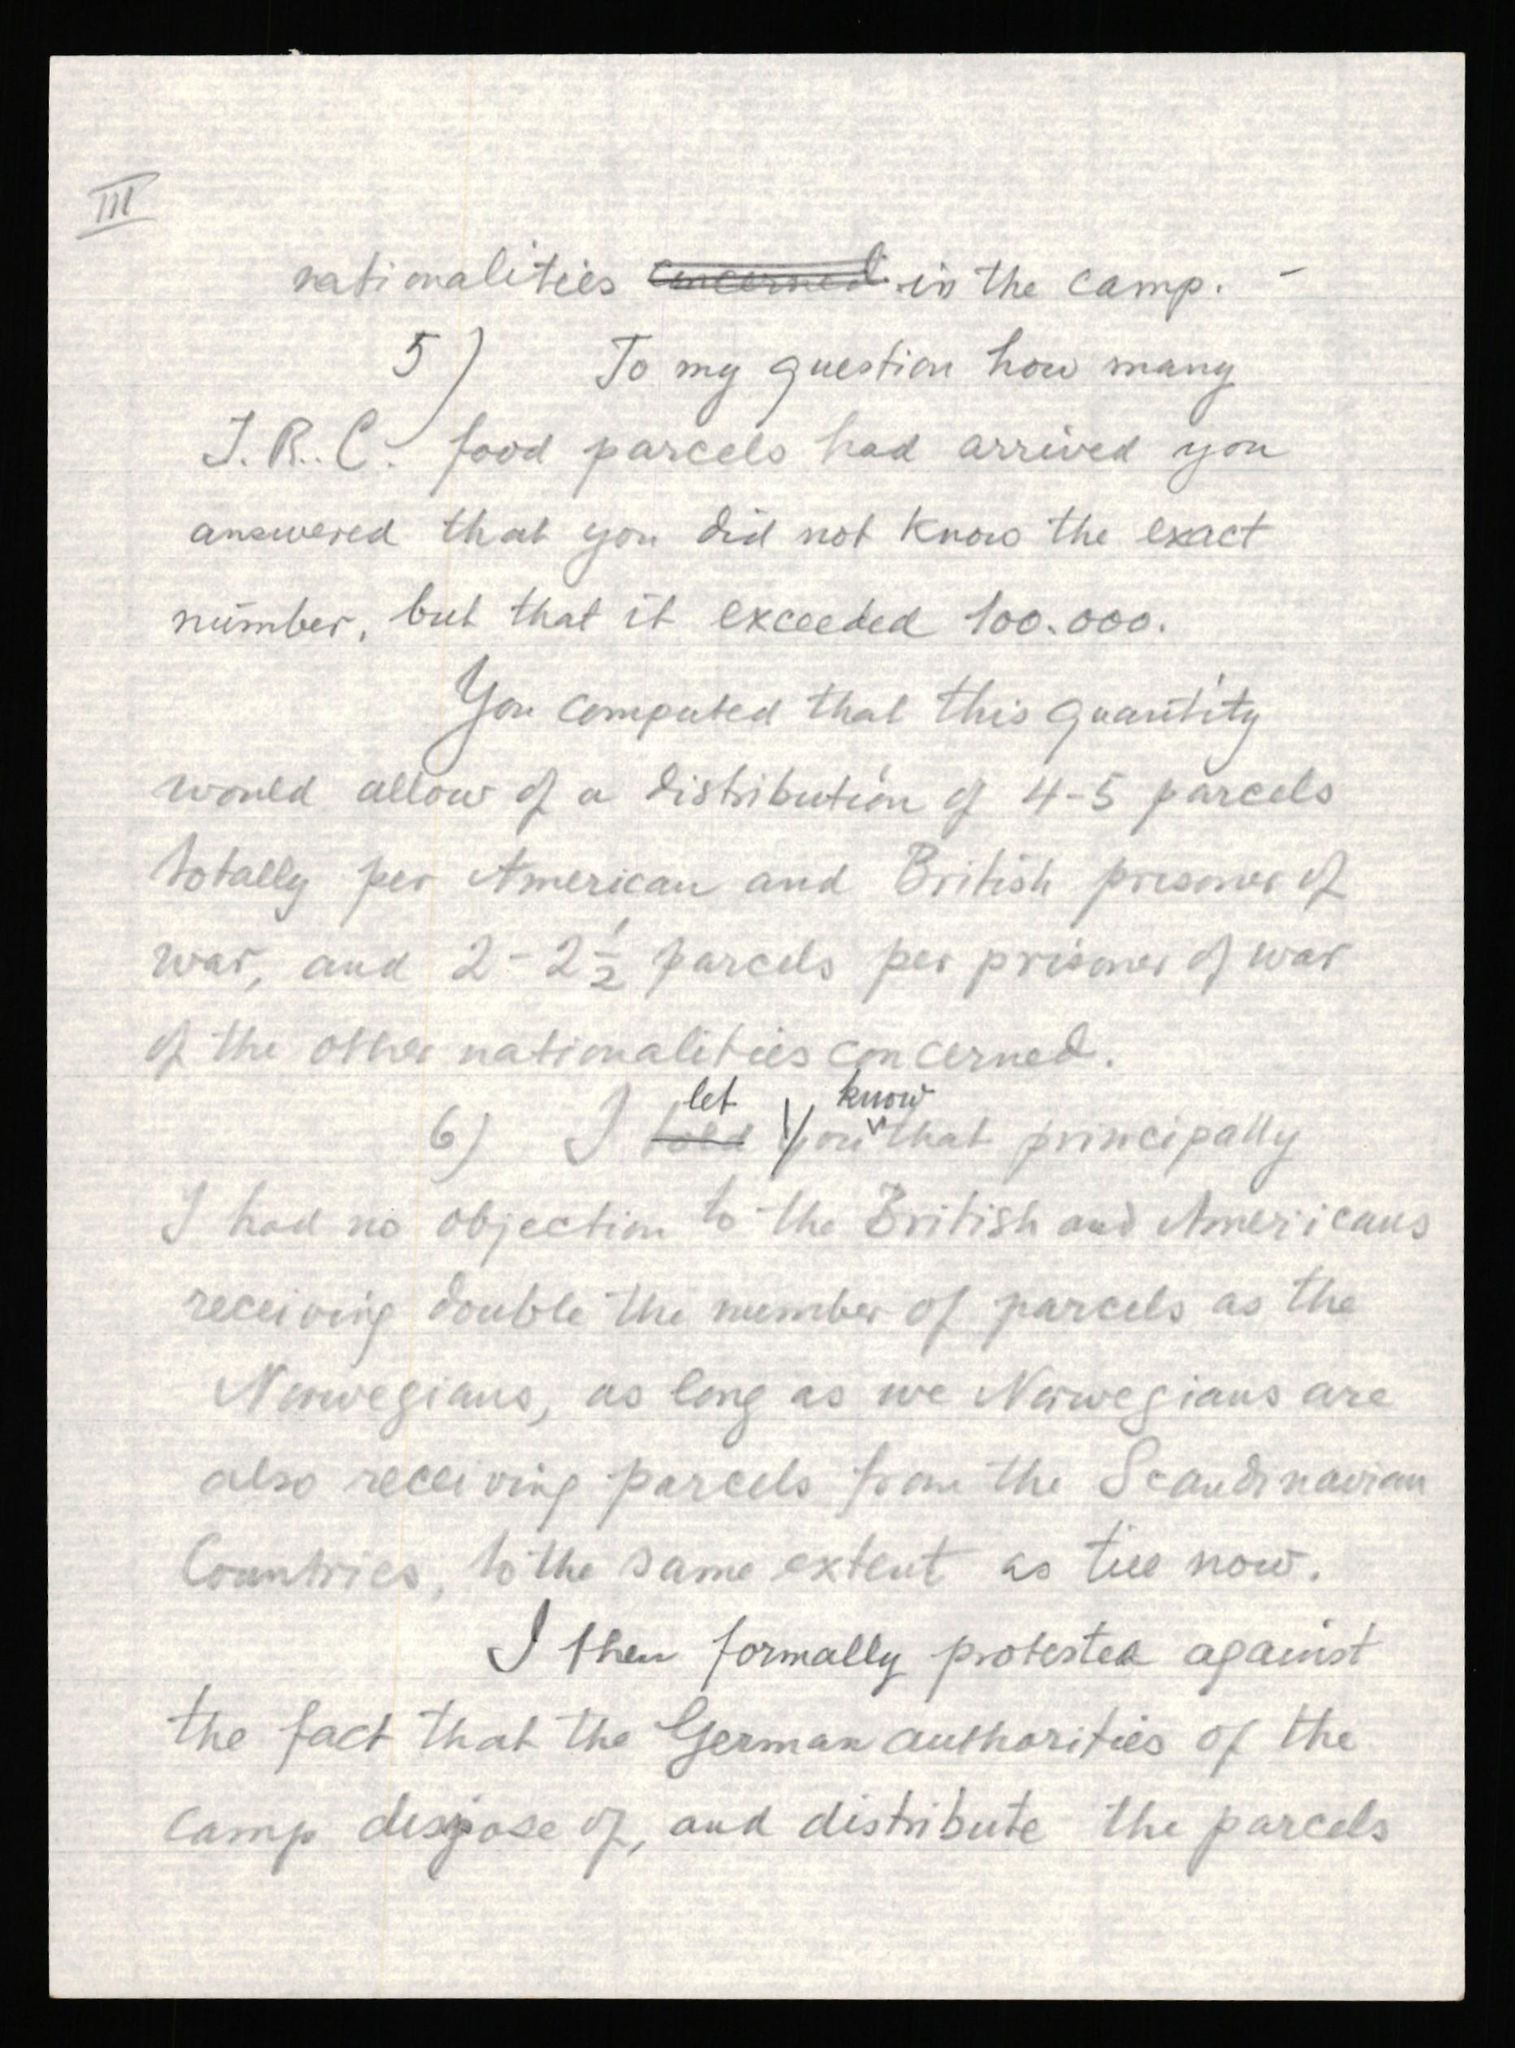 III
nationalities concerned in the camp. -
5) To my question how many
I.R.C. food parcels had arrived you
answered that you did not know the exact
number, but that it exceeded 100.000.
You computed that this quantity
would allow of a distribution of 4-5 parcels
totally per American and British prisoner of
war, and 2-2½ parcels per prisoner of war
of the other nationalities concerned.
let know
6) I told you that principally
I had no objection to the British and Americans
receiving double the number of parcels as the
Norwegians, as long as we Norwegians are
also receiving parcels from the Scandinavian
Countries, to the same extent as till now.
I then formally protested against
the fact that the German authorities of the
camp dispose of, and distribute the parcels